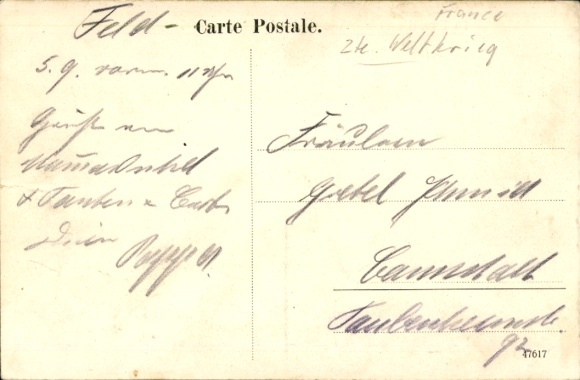 Feld-
Carte Postale.
France
2te. Weltkrieg
5. 9. vorm. 11 Uhr
Grüße an
Mama
& Tanten &
Dein
Fräulein
Gretel Schmid
Cannstatt
Taubenheimstr.
92
47617